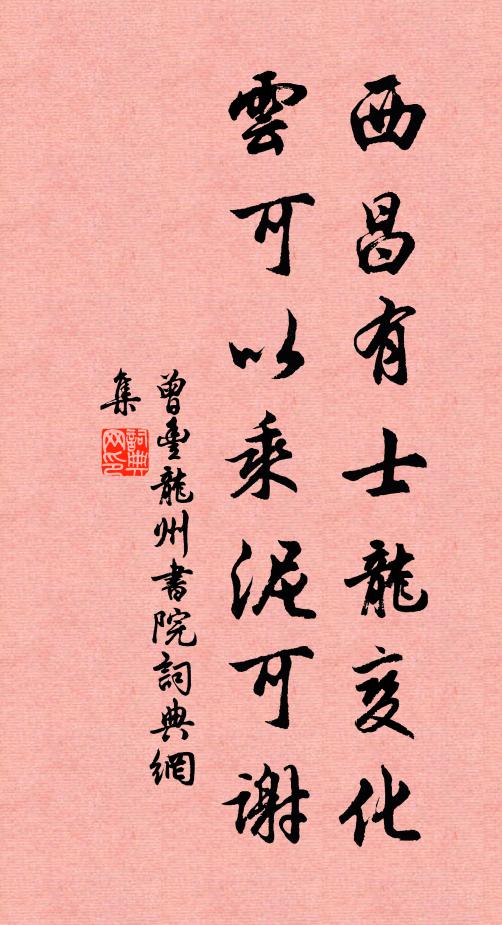 西昌有士龍变化
雲可以乘泥可谢
曾豊龍州書院詞典網
集
詞典网印